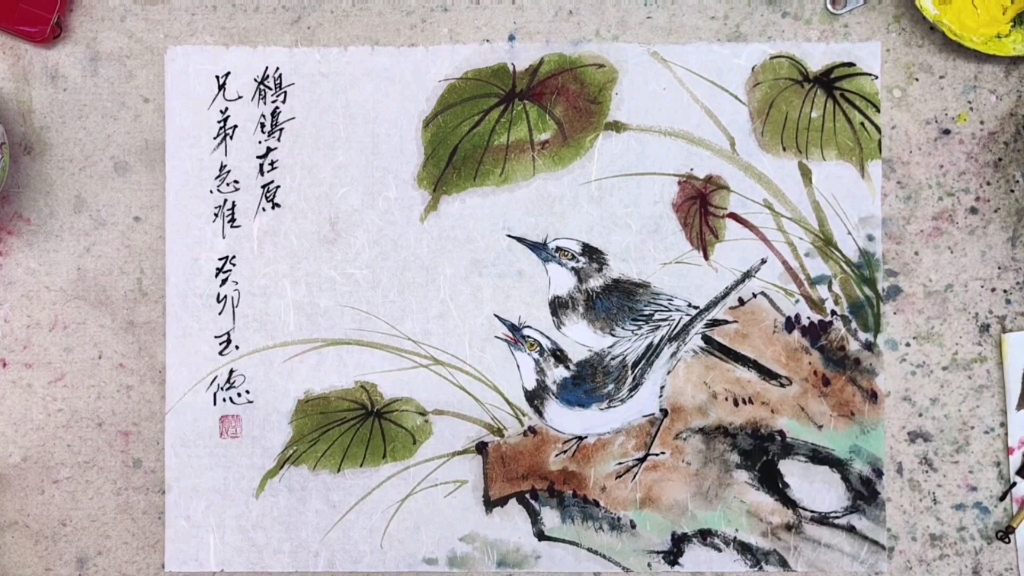 鶺鴒在原
兄弟急难
癸卯玉德